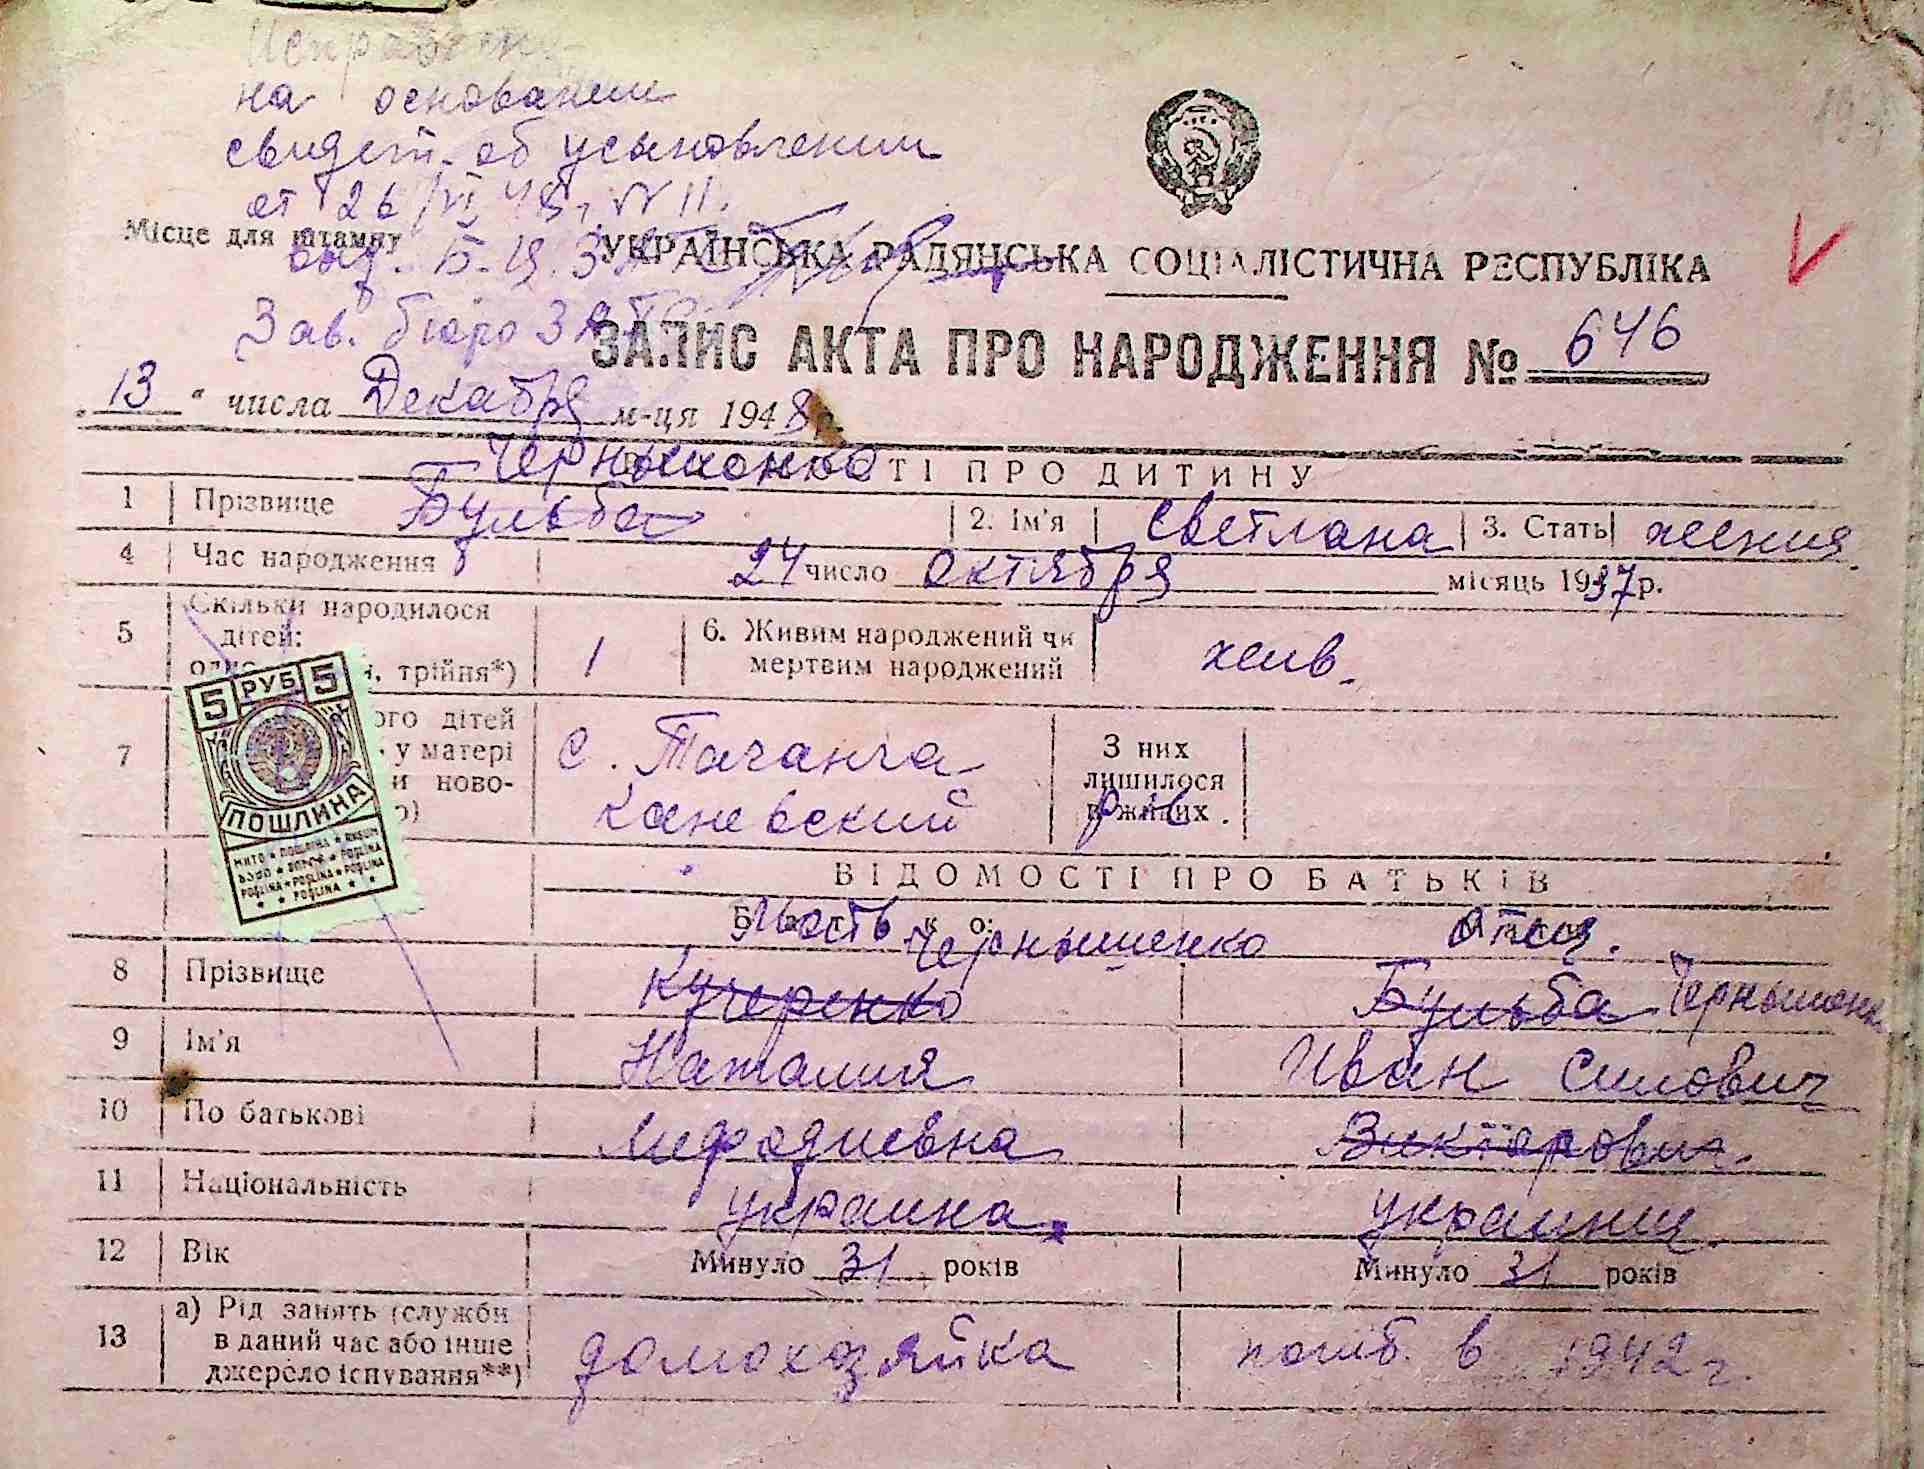 Исправлено
на основании
свидет. об усыновлении
от 26/VI 48 г. № 11.
Місце для штампу
УКРАЇНСЬКА РАДЯНСЬКА СОЦІАЛІСТИЧНА РЕСПУБЛІКА
Зав. бюро ЗАГС
ЗАПИС АКТА ПРО НАРОДЖЕННЯ № 646
"13" числа Декабря м-ця 1948 р.
Чернышенко
ТІ ПРО ДИТИНУ
1 Прізвище Бульба 2. Ім'я Светлана 3. Стать женския
4 Час народження 24 число октября місяць 1937 р.
5 Скільки народилося дітей: трійня*) 1 6. Живим народжений чи мертвим народжений жив.
7 ого дітей у матері и ново- о) с. Таганча Каневский р-в З них лишилося в живих
5 РУБ 5
ПОШЛИНА
МИТО ПОШЛИНА
POŞLINA POŞLINA POŞLINA
POŞLINA
ВІДОМОСТІ ПРО БАТЬКІВ
Мать отец.
Чернышенко
8 Прізвище Кучеренко Бульба Чернышенк
9 Ім'я Наталия Иван Силович
10 По батькові Мефодиевна Викторович.
11 Національність украинка украинец.
12 Вік Минуло 31 років Минуло 31 років
13 а) Рід занять (служби в даний час або інше джерело існування**) домохозяйка погиб. в 1942 г.